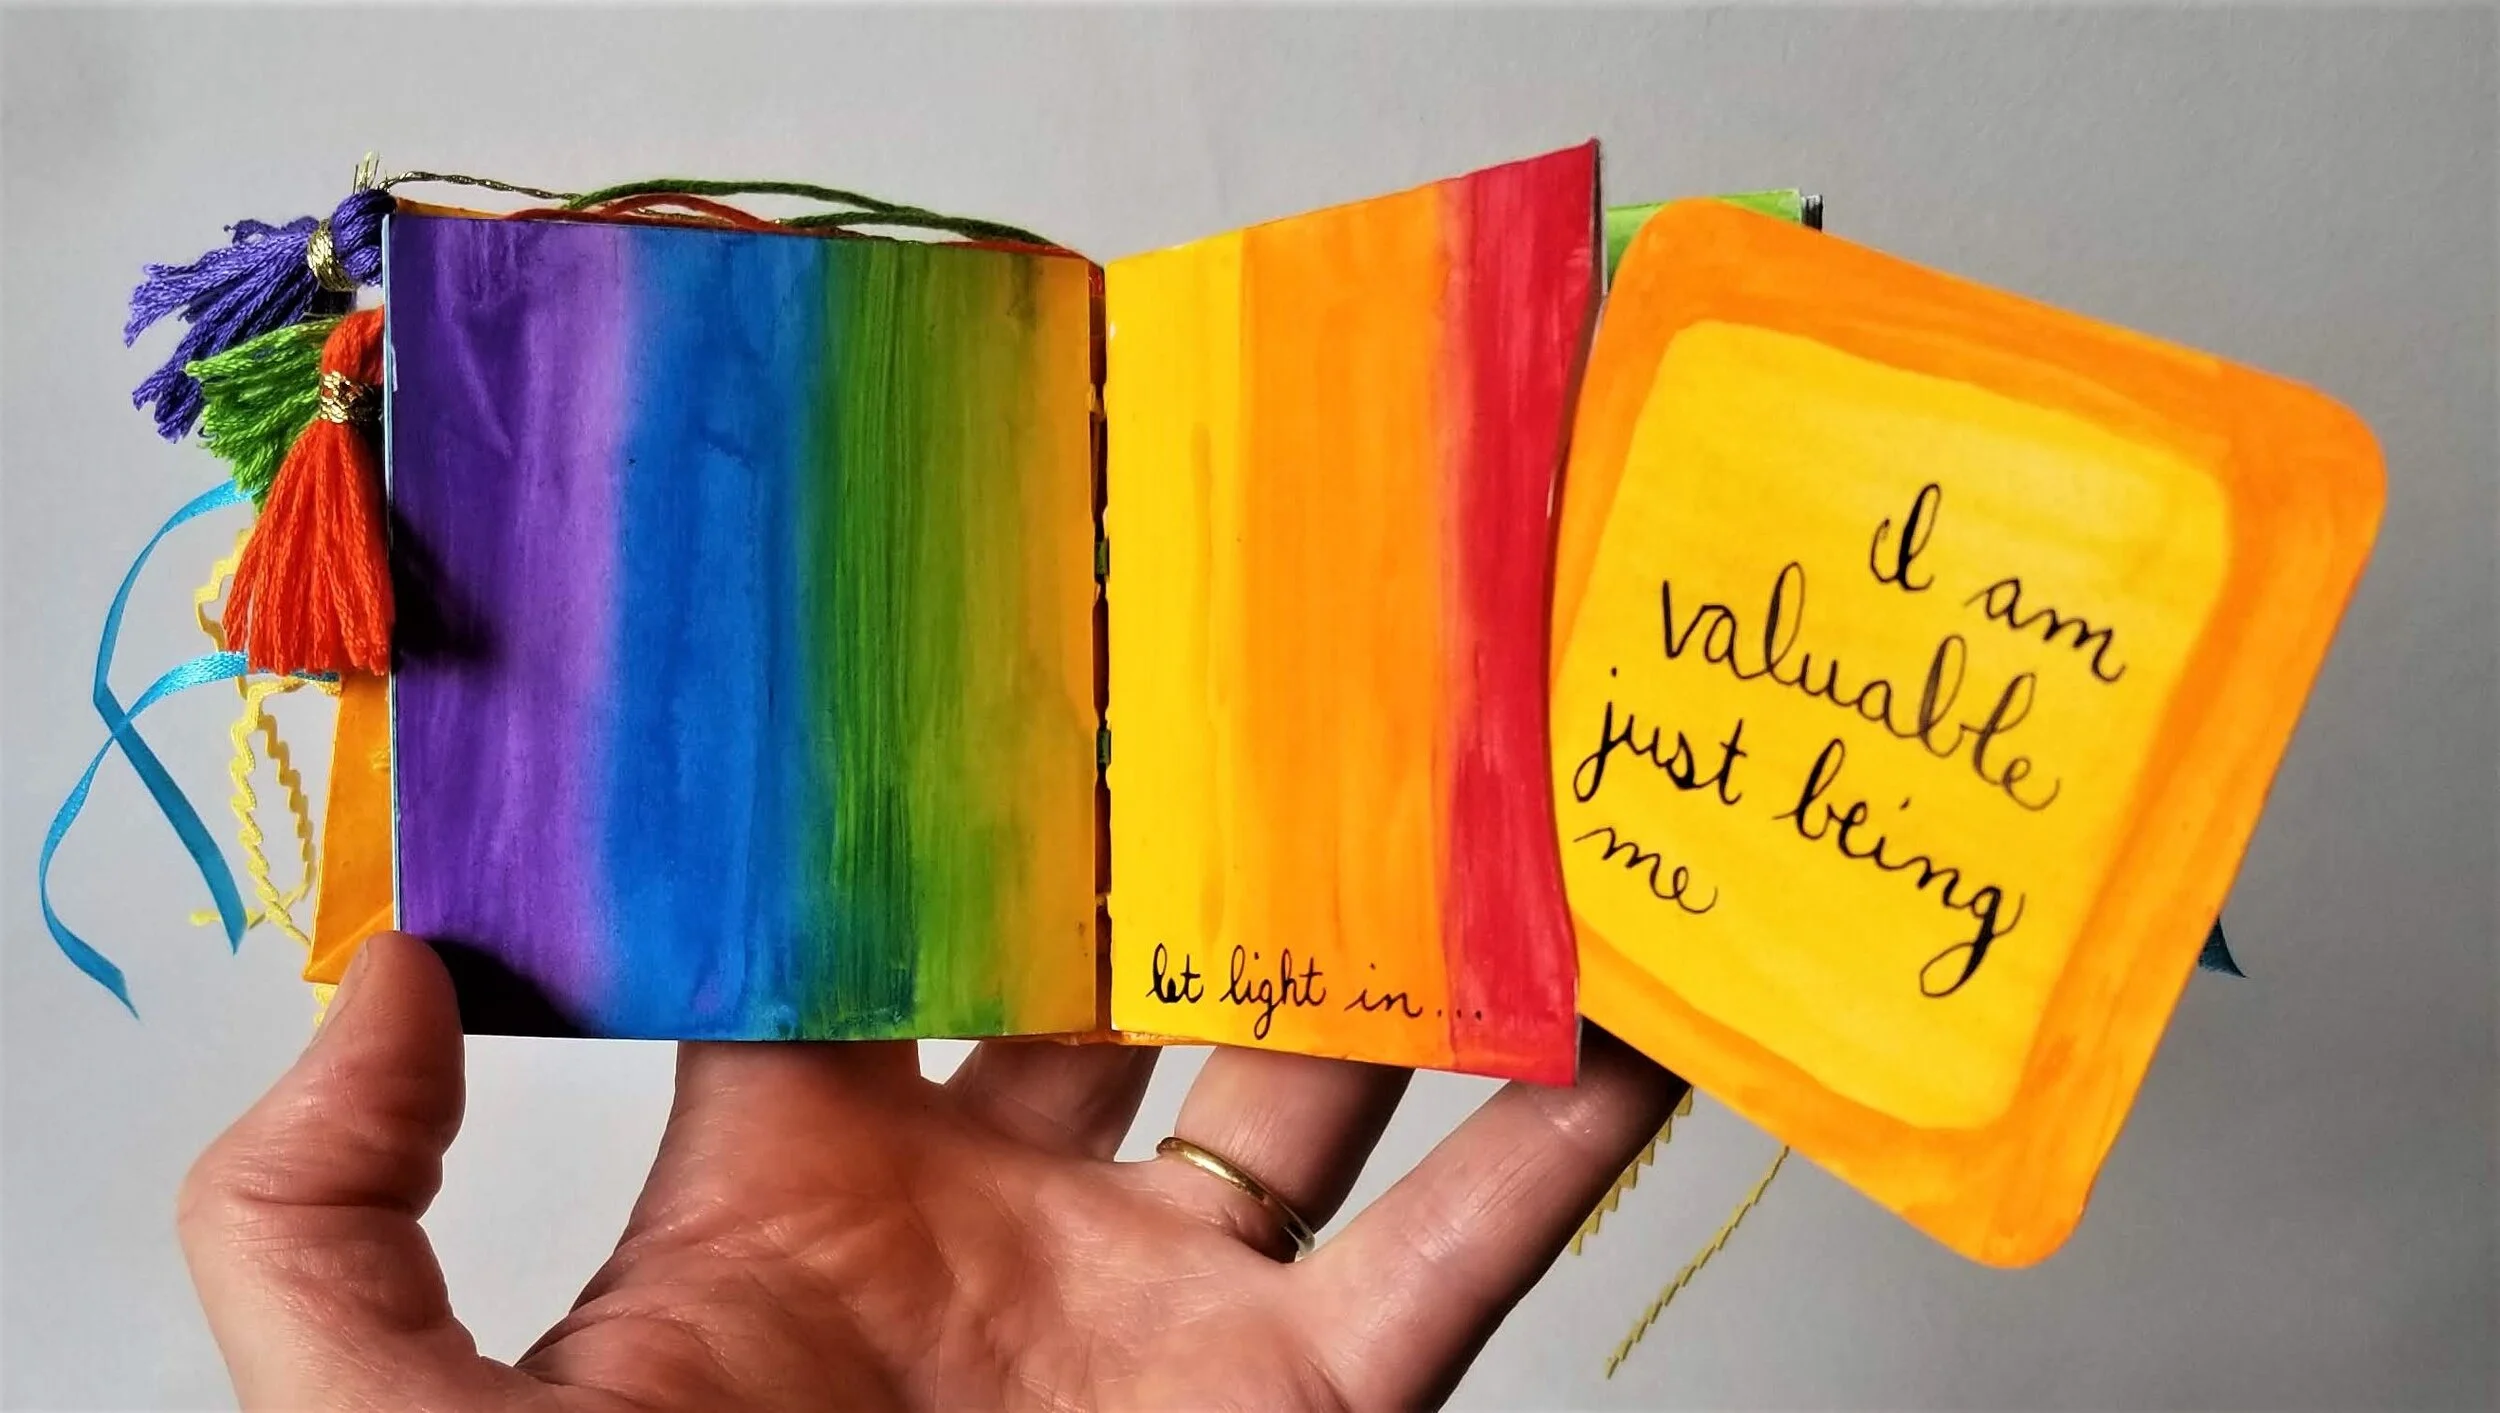 let light in...
I am
valuable
just being
me